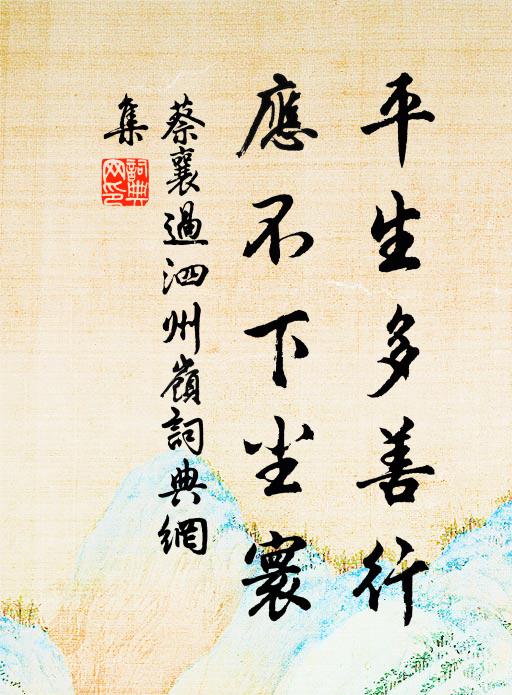 平生多善行
應不下尘寰
蔡襄過泗州嶺詞典網
集
詞典网印